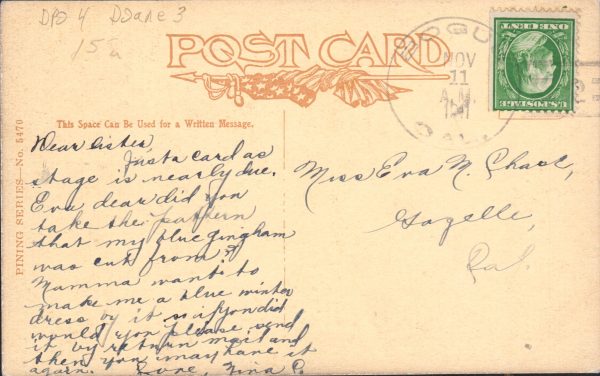 DPO 4 Doane 3
15
POST CARD
NOV
11
A.M.
CAL.
U.S. POSTAGE
ONE CENT
This Space Can Be Used for a Written Message.
PINING SERIES—No. 5470
Dear sister,
Just a card as
stage is nearly due.
Eva dear did you
take the pattern
that my blue gingham
was cut from?
Mamma wants to
make me a blue winter
dress by it so if you did
would you please send
it by return mail and
then you may have it
again. Love, Nina C.
Miss Eva N.
Gazelle,
Cal.